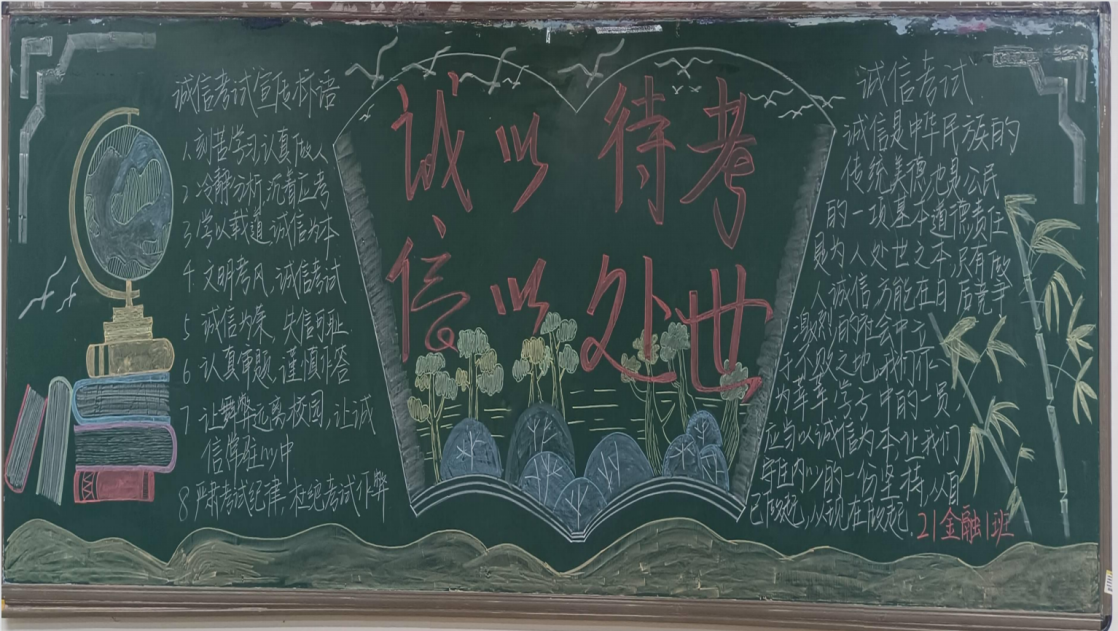 诚信考试宣传标语
1、刻苦学习,认真做人
2、冷静分析,沉着应考
3、学以载道,诚信为本
4、文明考风,诚信考试
5 诚信为荣,失信可耻
6 认真审题,谨慎作答
7 让舞弊远离校园,让诚
信常驻心中
8 严肃考试纪律,杜绝考试作弊
诚以待考
信以处世
诚信考试
诚信是中华民族的
传统美德,也是公民
的一项基本道德责任
是为人处世之本,只有
人诚信,方能在日后竞争
激烈的社会中立
于不败之地,我们作
为莘莘学子中的一员,
应当以诚信为本,让我们
内心的一份坚持,从自
己做起,从现在做起.
21金融1班